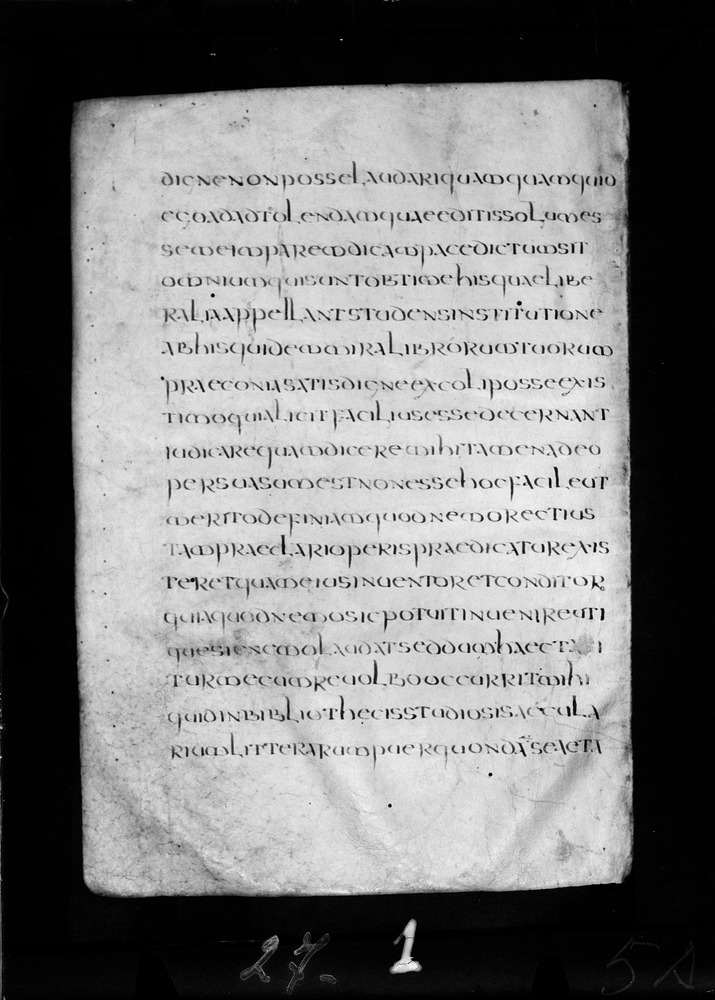 dicnenonposselaudariquamquamquid
egoadadtolendamquaeeditissolumes
semeimparemdicampacedictumsit
omniumquisuntobtimehisquaelibe
raliaappellantstudensinstitutione
abhisquidemmiralibrorumtuorum
praeconiasatisdigneexcoliposseexis
timoquialicitfaciliusessedecernant
iudicarequamdiceremihitamenadeo
persuasumestnonessehocfacileut
meritodefiniamquodnemorectius
tampraeclarioperispraedicaturexis
teretquameiusinuentoretconditor
quiaquodnemosicpotuitinuenireuti
laudatseddumhaecta i
turmecumreuolbooccurritmihi
quidinbibliothecisstudiosisaccula
riumlitterarumpuerquondãseaeta
27. 1 5A